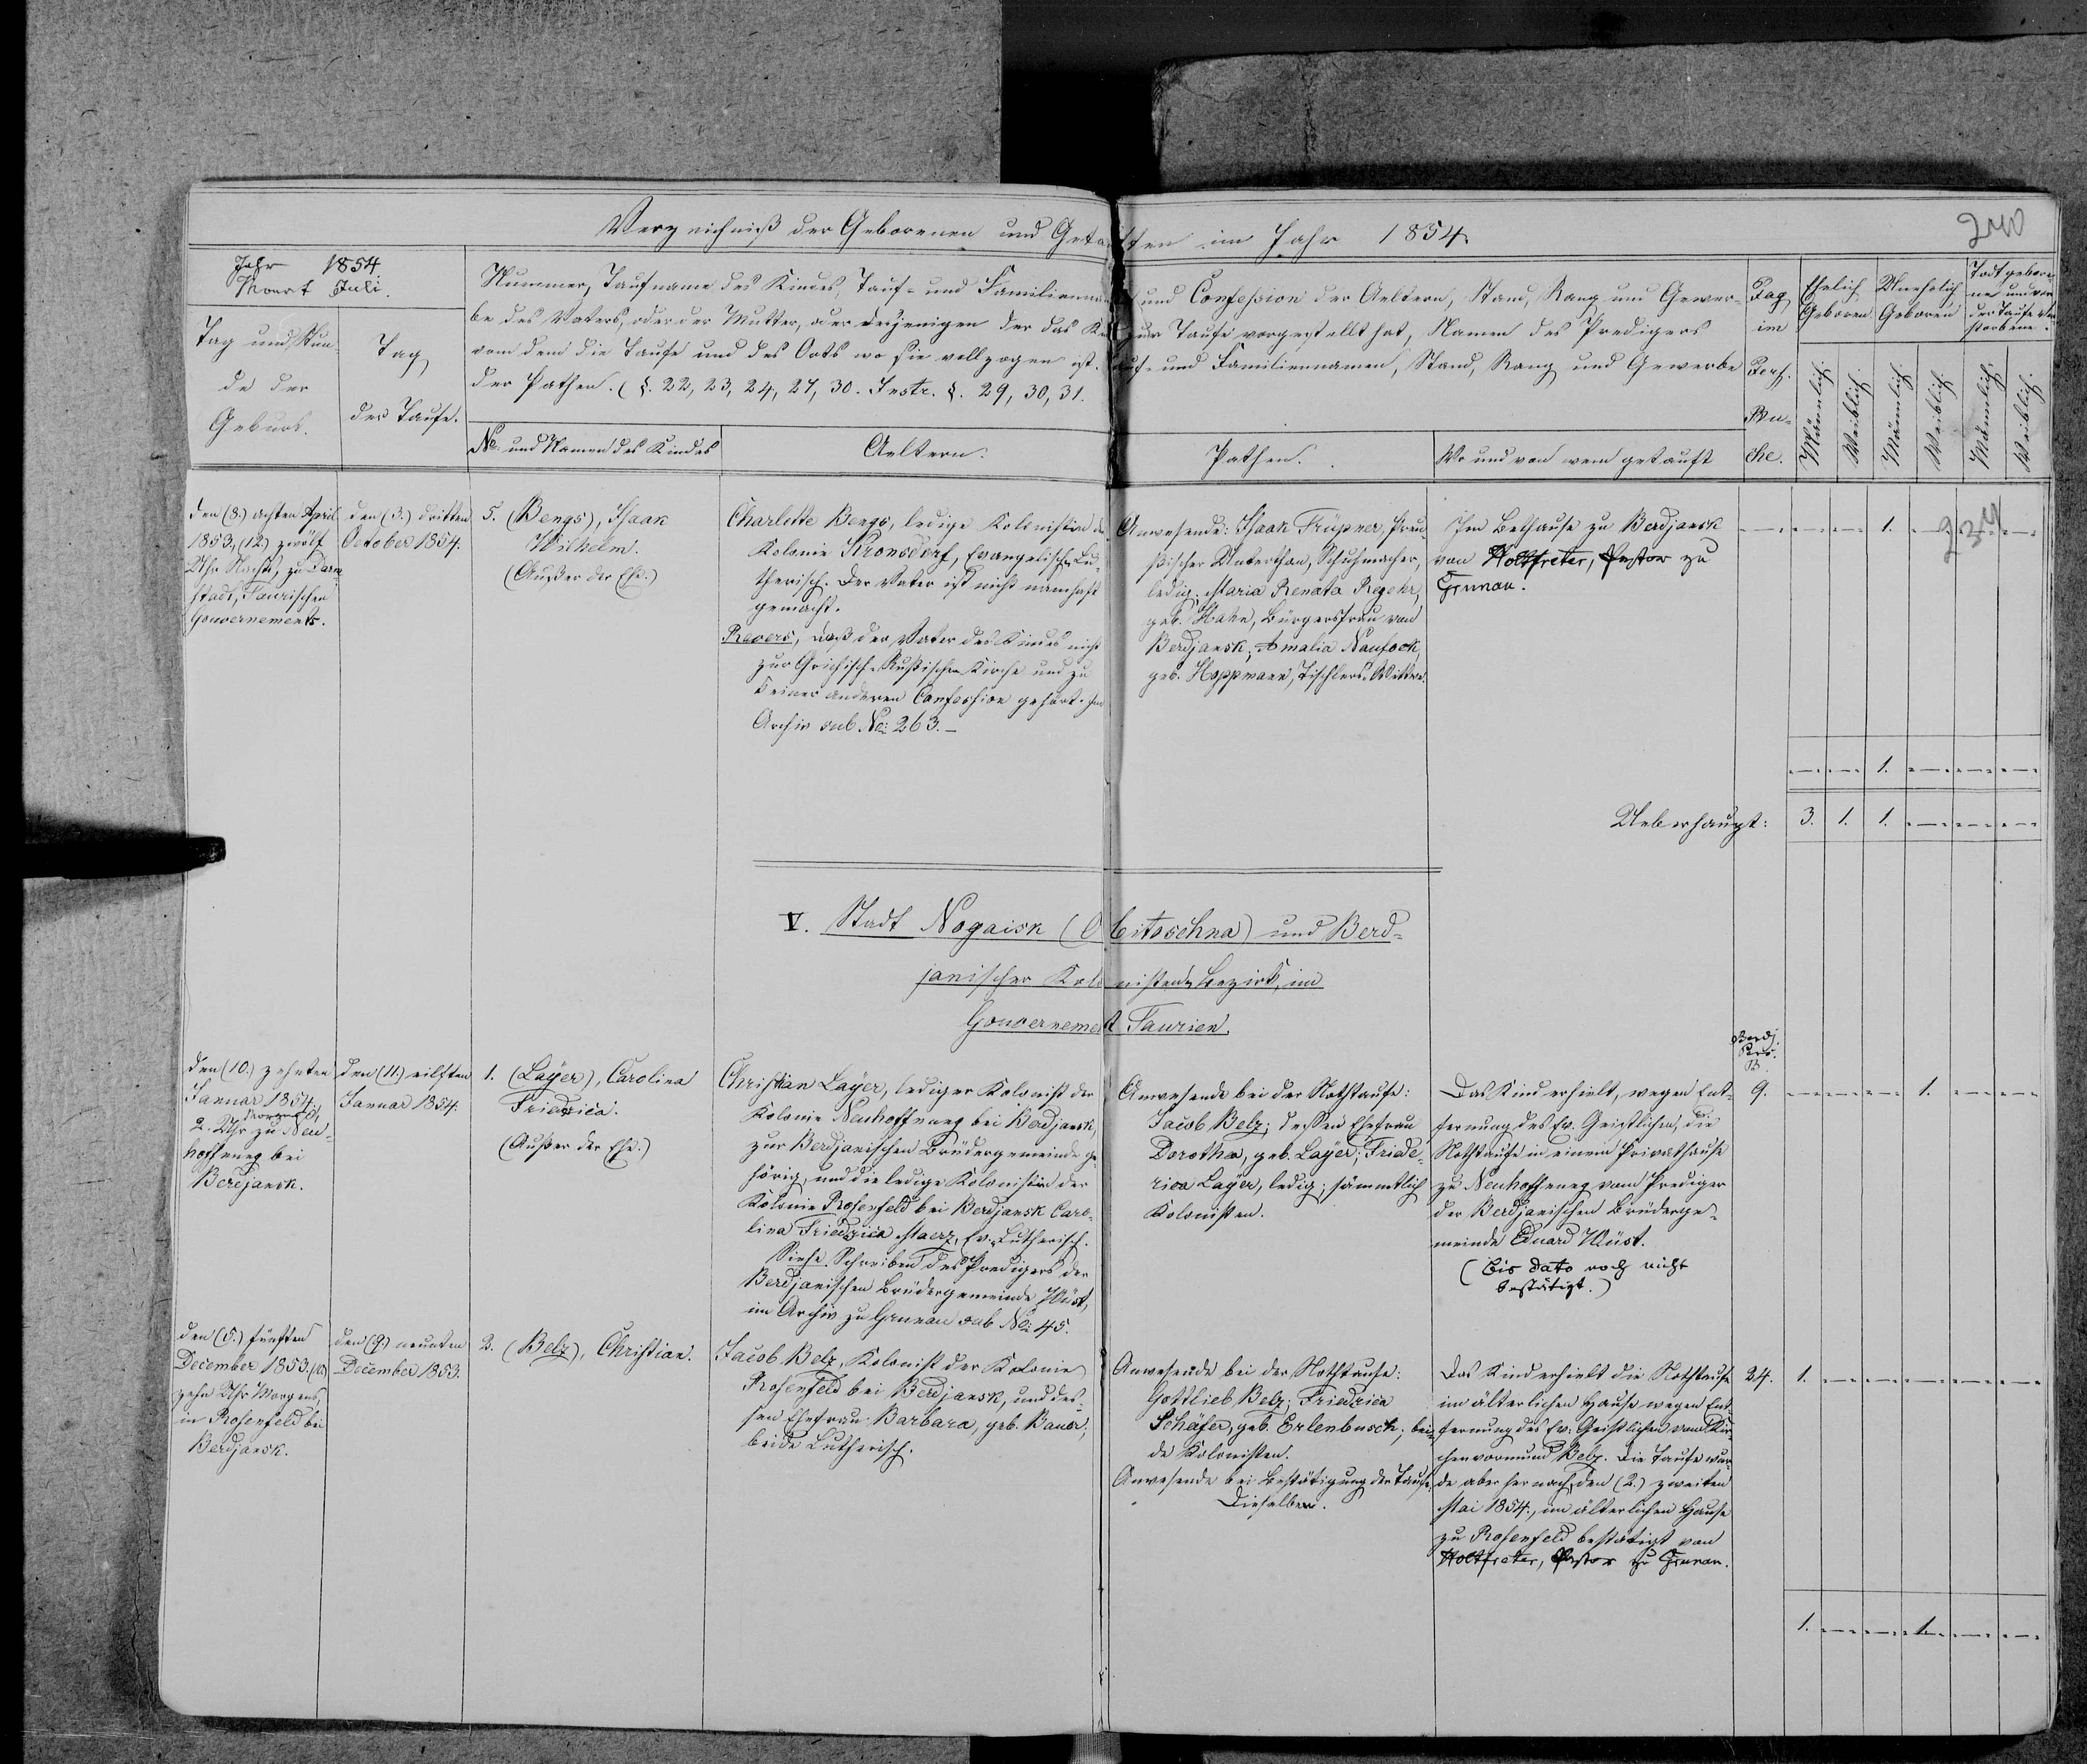 Verzeichniß der Geborenen und Getauften im Jahr 1854.
240
Jahr 1854.
Monat Juli.
Tag und Stun-
de der
Geburt.
Tag
der Taufe.
Nummer, Taufname des Kindes, Tauf- und Familiennamen und Confession der Aeltern, Stand, Rang und Gewer-
be des Vaters, oder der Mutter, oder desjenigen der das Kind zur Taufe vorgestellt hat, Namen des Predigers
von dem die Taufe und des Orts wo sie vollzogen ist. Tauf- und Familiennamen, Stand, Rang und Gewerbe
der Pathen. (§. 22, 23, 24, 27, 30. Instr. §. 29, 30, 31.
No. und Namen des Kindes
Aeltern.
Pathen.
Wo und von wem getauft
Pag.
im
Pers.
Bu-
che.
Ehelich
Geboren
Unehelich
Geboren
Todtgebore-
ne und vor
der Taufe Ver-
storbene.
Männlich.
Weiblich.
Männlich.
Weiblich.
Männlich.
Weiblich.
den (8.) achten April
1853, (12.) zwölf
Uhr Nachts, zu Darm-
stadt, Taurischen
Gouvernements.
den (3.) dritten
October 1854.
5. (Bengs), Isaak
Wilhelm.
(Außer der Ehe.)
Charlotte Bengs, ledige Kolonistin der
Kolonie Kronsdorf, Evangelisch-Lu-
therisch. Der Vater ist nicht namhaft
gemacht.
Revers, daß der Vater des Kindes nicht
zur Griechisch-Russischen Kirche und zu
keiner anderen Confession gehört. Im
Archiv sub No: 263.
Anwesende: Isaak Früpner, Preu-
ßischer Unterthan, Schuhmacher,
ledig; Maria Renata Regehr,
geb. Hahn, Bürgersfrau von
Berdjansk; Amalia Naufock,
geb. Hoppmann, Tischlers-Wittwe.
Im Bethause zu Berdjansk
von Holtfreter, Pastor zu
Grunau.
1.
239
1.
Ueberhaupt: 3. 1. 1.
V. Stadt Nogaisk (Obitoschna) und Berd-
janischer Kolonisten Bezirk, im
Gouvernement Taurien.
den (10.) zehnten
Januar 1854,
2. Uhr Morgens, zu Neu-
hoffnung bei
Berdjansk.
den (11.) eilften
Januar 1854.
1. (Layer), Carolina
Friedrica.
(Außer der Ehe.)
Christian Layer, lediger Kolonist der
Kolonie Neuhoffnung bei Berdjansk,
zur Berdjanischen Brüdergemeinde ge-
hörig, und die ledige Kolonistin der
Kolonie Rosenfeld bei Berdjansk Caro-
lina Friedrica Maerz, Ev. Lutherisch.
Siehe Schreiben des Predigers der
Berdjanischen Brüdergemeinde Wüst,
im Archiv zu Grunau sub No: 45.
Anwesende bei der Nothtaufe:
Jacob Belz; dessen Ehefrau
Dorothea, geb. Layer; Friede-
rica Layer, ledig; sämmtlich
Kolonisten.
Das Kind erhielt, wegen Ent-
fernung des Ev. Geistlichen, die
Nothtaufe in einem Privathause
zu Neuhoffnung vom Prediger
der Berdjanischen Brüderge-
meinde Eduard Wüst.
(Bis dato noch nicht
bestätigt.)
Berdj.
Pers.
B.
9.
1.
den (5.) fünften
December 1853, (10.)
zehn Uhr Morgens,
in Rosenfeld bei
Berdjansk.
den (9.) neunten
December 1853.
2. (Belz), Christian.
Jacob Belz, Kolonist der Kolonie
Rosenfeld bei Berdjansk, und des-
sen Ehefrau Barbara, geb. Bauer;
beide Lutherisch.
Anwesende bei der Nothtaufe:
Gottlieb Belz; Friedrica
Schäfer, geb. Erlenbusch; bei-
de Kolonisten.
Anwesende bei Bestätigung der Taufe:
Dieselben.
Das Kind erhielt die Nothtaufe
im älterlichen Hause wegen Ent-
fernung des Ev. Geistlichen vom Kir-
chenvormund Belz. Die Taufe wur-
de aber hernach, den (2.) zweiten
Mai 1854, im älterlichen Hause
zu Rosenfeld bestätigt von
Holtfreter, Pastor zu Grunau.
24.
1.
1. 1.